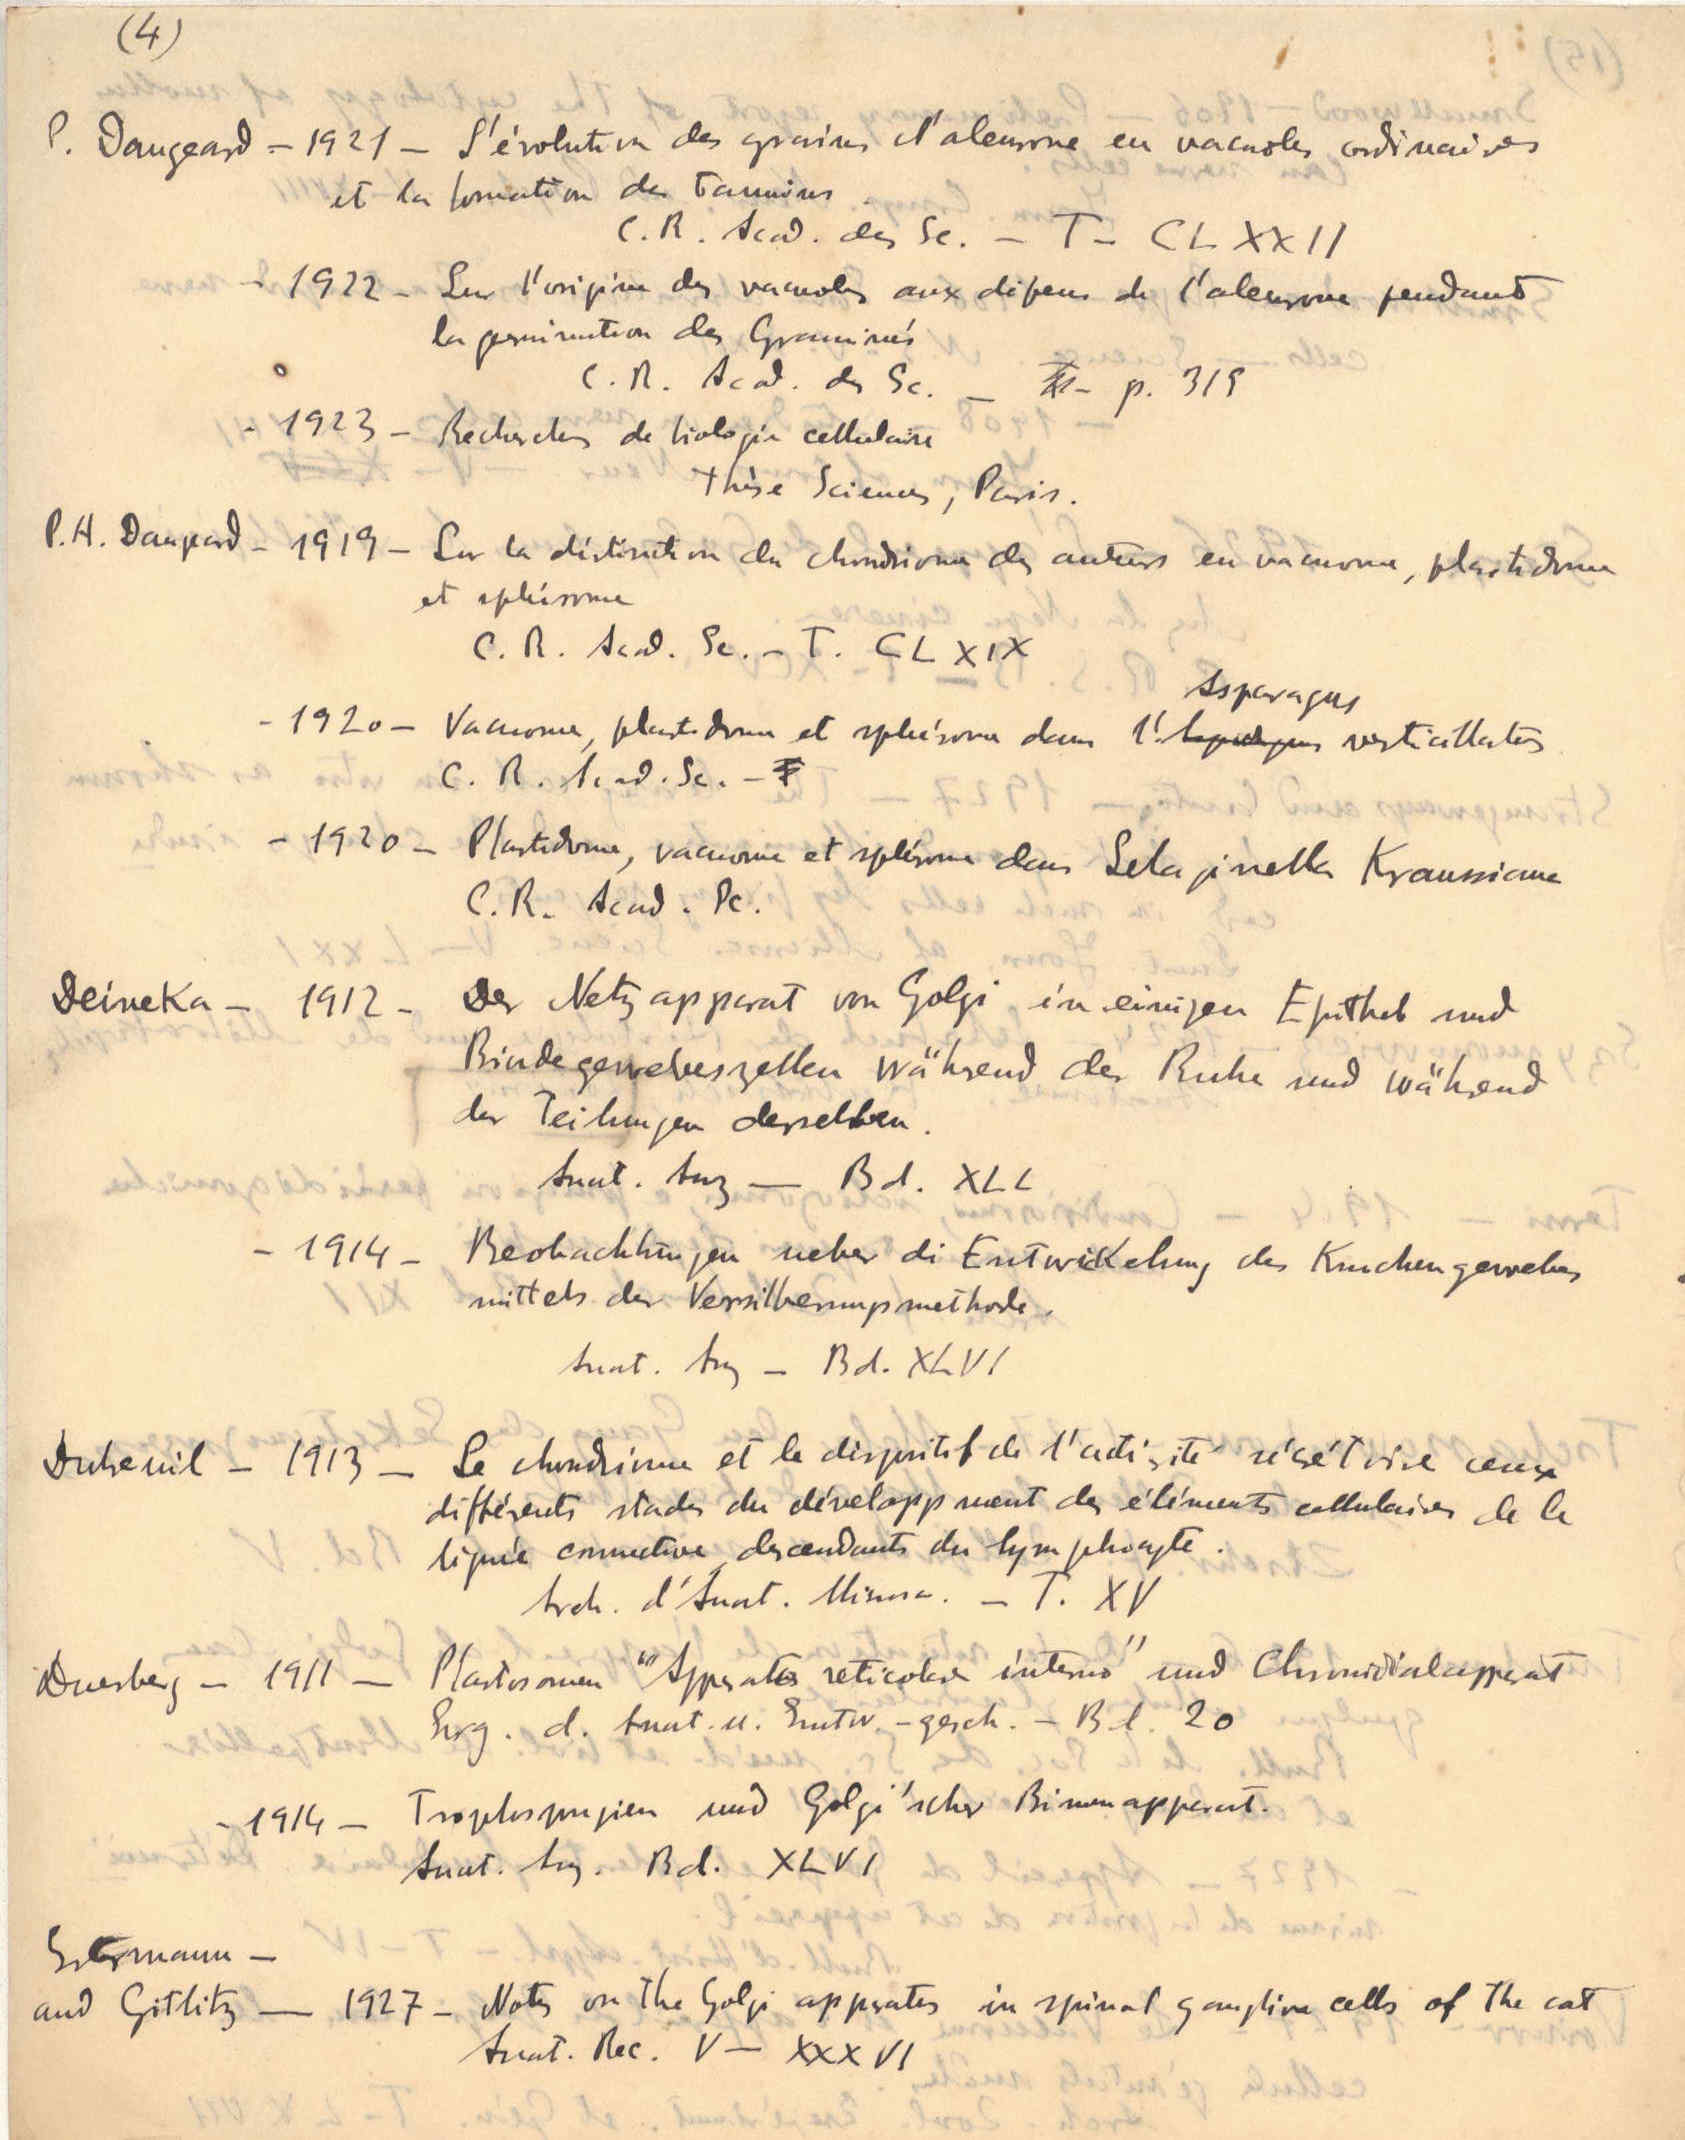 (4)
P. Dangeard - 1921 - L'évolution des grains d'aleurone en vacuoles ordinaires
et la formation des tannins
C. R. Acad. des Sc. - T - CLXXII
- 1922 - Sur l'origine des vacuoles aux dépens de l'aleurone pendant
la germination des Graminés
C. R. Acad. des Sc. - p. 319
- 1923 - Recherches de biologie cellulaire
Thèse Sciences, Paris.
P. A. Dangeard - 1919 - Sur la distinction du chondriome des auteurs en vacuome, plastidome
et sphérome
C. R. Acad. Sc. - T. CLXIX
Asparagus
- 1920 - Vacuome, plastidome et sphérome dans l' verticillatus
C. R. Acad. Sc. -
- 1920 - Plastidome, vacuome et sphérome dans Selaginella Kraussiana
C. R. Acad. Sc.
Deineka - 1912 - Der Netzapparat von Golgi in einigen Epithel und
Bindegewebeszellen während der Ruhe und während
der Teilungen derselben.
Anat. Anz - Bd. XLI
- 1914 - Beobachtungen ueber di Entwickelung des Knochengewebes
mittels der Versilberungsmethode.
Anat. Anz - Bd. XLVI
Dubreuil - 1913 - Le chondriome et le dispositif de l'activité sécrétrice aux
différents stades du développment des éléments cellulaires de la
lignée connective descendants du lymphocyte.
Arch. d'Anat. Micros. - T. XV
Duesberg - 1911 - Plastosomen "Apparato reticolare interno" und Chromidialapparat
Erg. d. Anat. u. Entw-gesch. - Bd. 20
- 1914 - Trophospongien und Golgi'scher Binnenapparat.
Anat. Anz. Bd. XLVI
and Gitlitz - 1927 - Notes on the Golgi apparatus in spinal ganglion cells of the cat
Anat. Rec. V - XXXVI